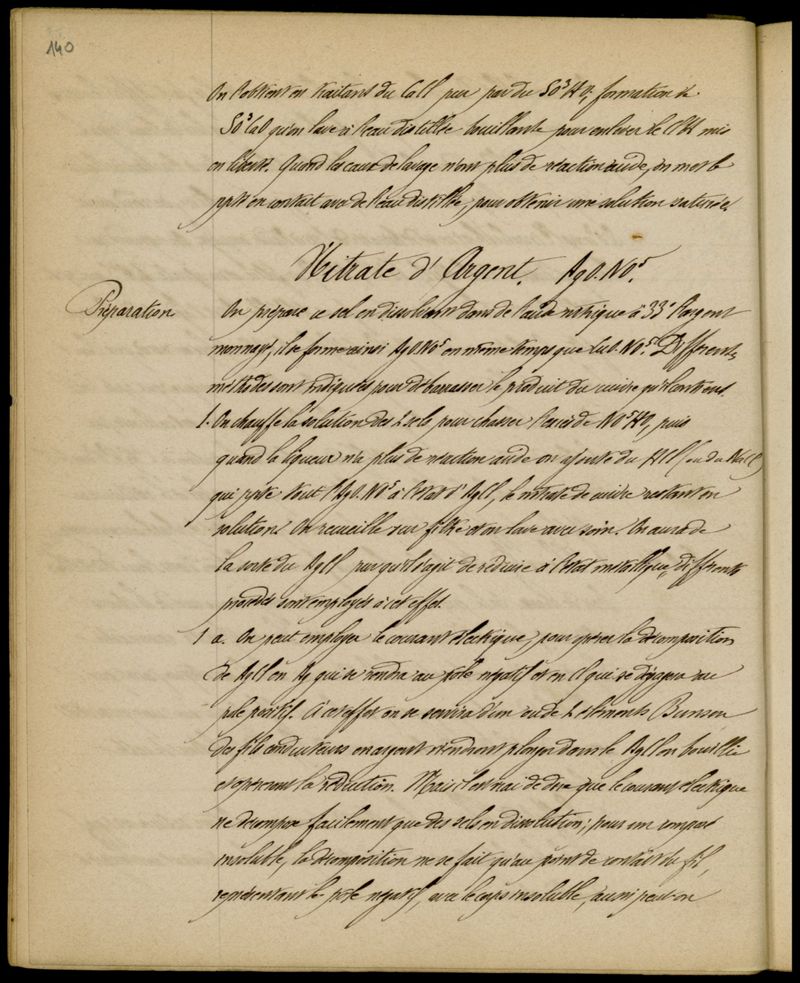 140
On l'obtient en traitant du CaCl pur par du SO³HO, formation de
SO³CaO qu'on lave à l'eau distillée bouillante pour enlever le ClH mis
en liberté. Quand les eaux de lavage n'ont plus de réaction acide, on met le
ppté en contact avec de l'eau distillée, pour obtenir une solution saturée.
Nitrate d'Argent. AgO.NO⁵.
Préparation
On prépare ce sel en dissolvant dans de l'acide nitrique à 33° l'argent
monnayé, il se forme ainsi AgO.NO⁵ en même temps que CuO.NO⁵. Différentes
méthodes sont indiquées pour débarrasser le produit du cuivre qu'il contient.
1. On chauffe la solution des 2 sels pour chasser l'excès de NO⁵HO, puis
quand la liqueur n'a plus de réaction acide on ajoute du HCl (ou du NaCl)
qui ppte tout l'AgO.NO⁵ à l'état d'AgCl, le nitrate de cuivre restant en
solution. On recueille sur filtre et on lave avec soin. On aura de
la sorte du AgCl pur qu'il s'agit de réduire à l'état métallique, différents
procédés sont employés à cet effet.
1 a. On peut employer le courant électrique, pour opérer la décomposition
de AgCl en Ag qui se rendra au pôle négatif et en Cl qui se dégagera au
pôle positif. A cet effet on se servira d'un ou de 2 éléments Bunsen
des fils conducteurs en argent viendront plonger dans le AgCl en bouillie
et opéreront la réduction. Mais il est vrai de dire que le courant électrique
ne décompose facilement que des sels en dissolution; pour un composé
insoluble, la décomposition ne se fait qu'au point de contact du fil,
représentant le pôle négatif, avec le corps insoluble, aussi peut-on